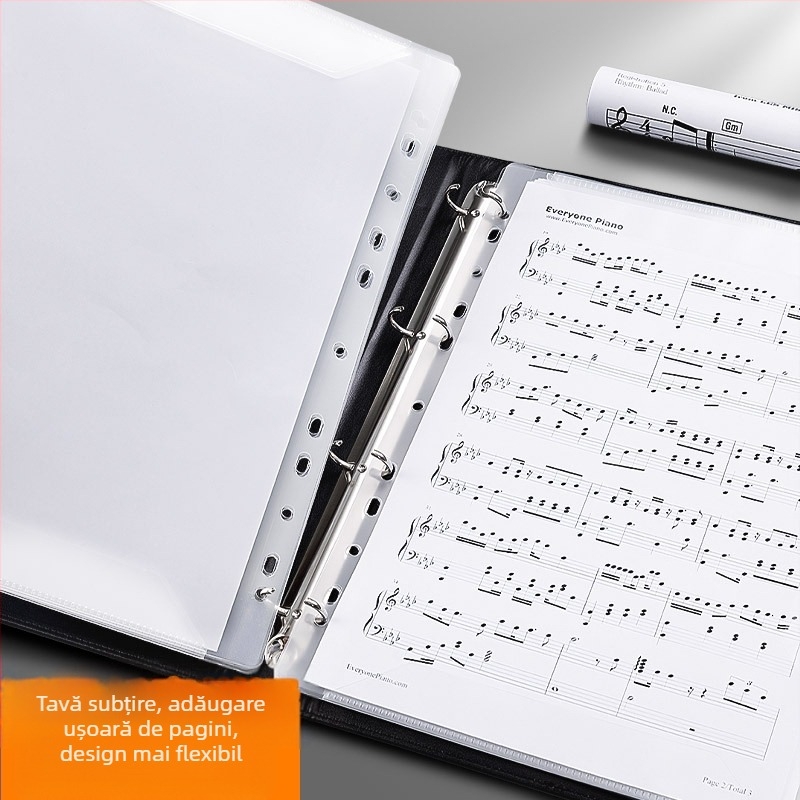 Registration 5,
Rhythm: Ballad
N.C.
Gm
Everyone Piano
www.EveryonePiano.com
EveryonePiano.com
Page 2/Total 3
Tavă subțire, adăugare
ușoară de pagini,
design mai flexibil